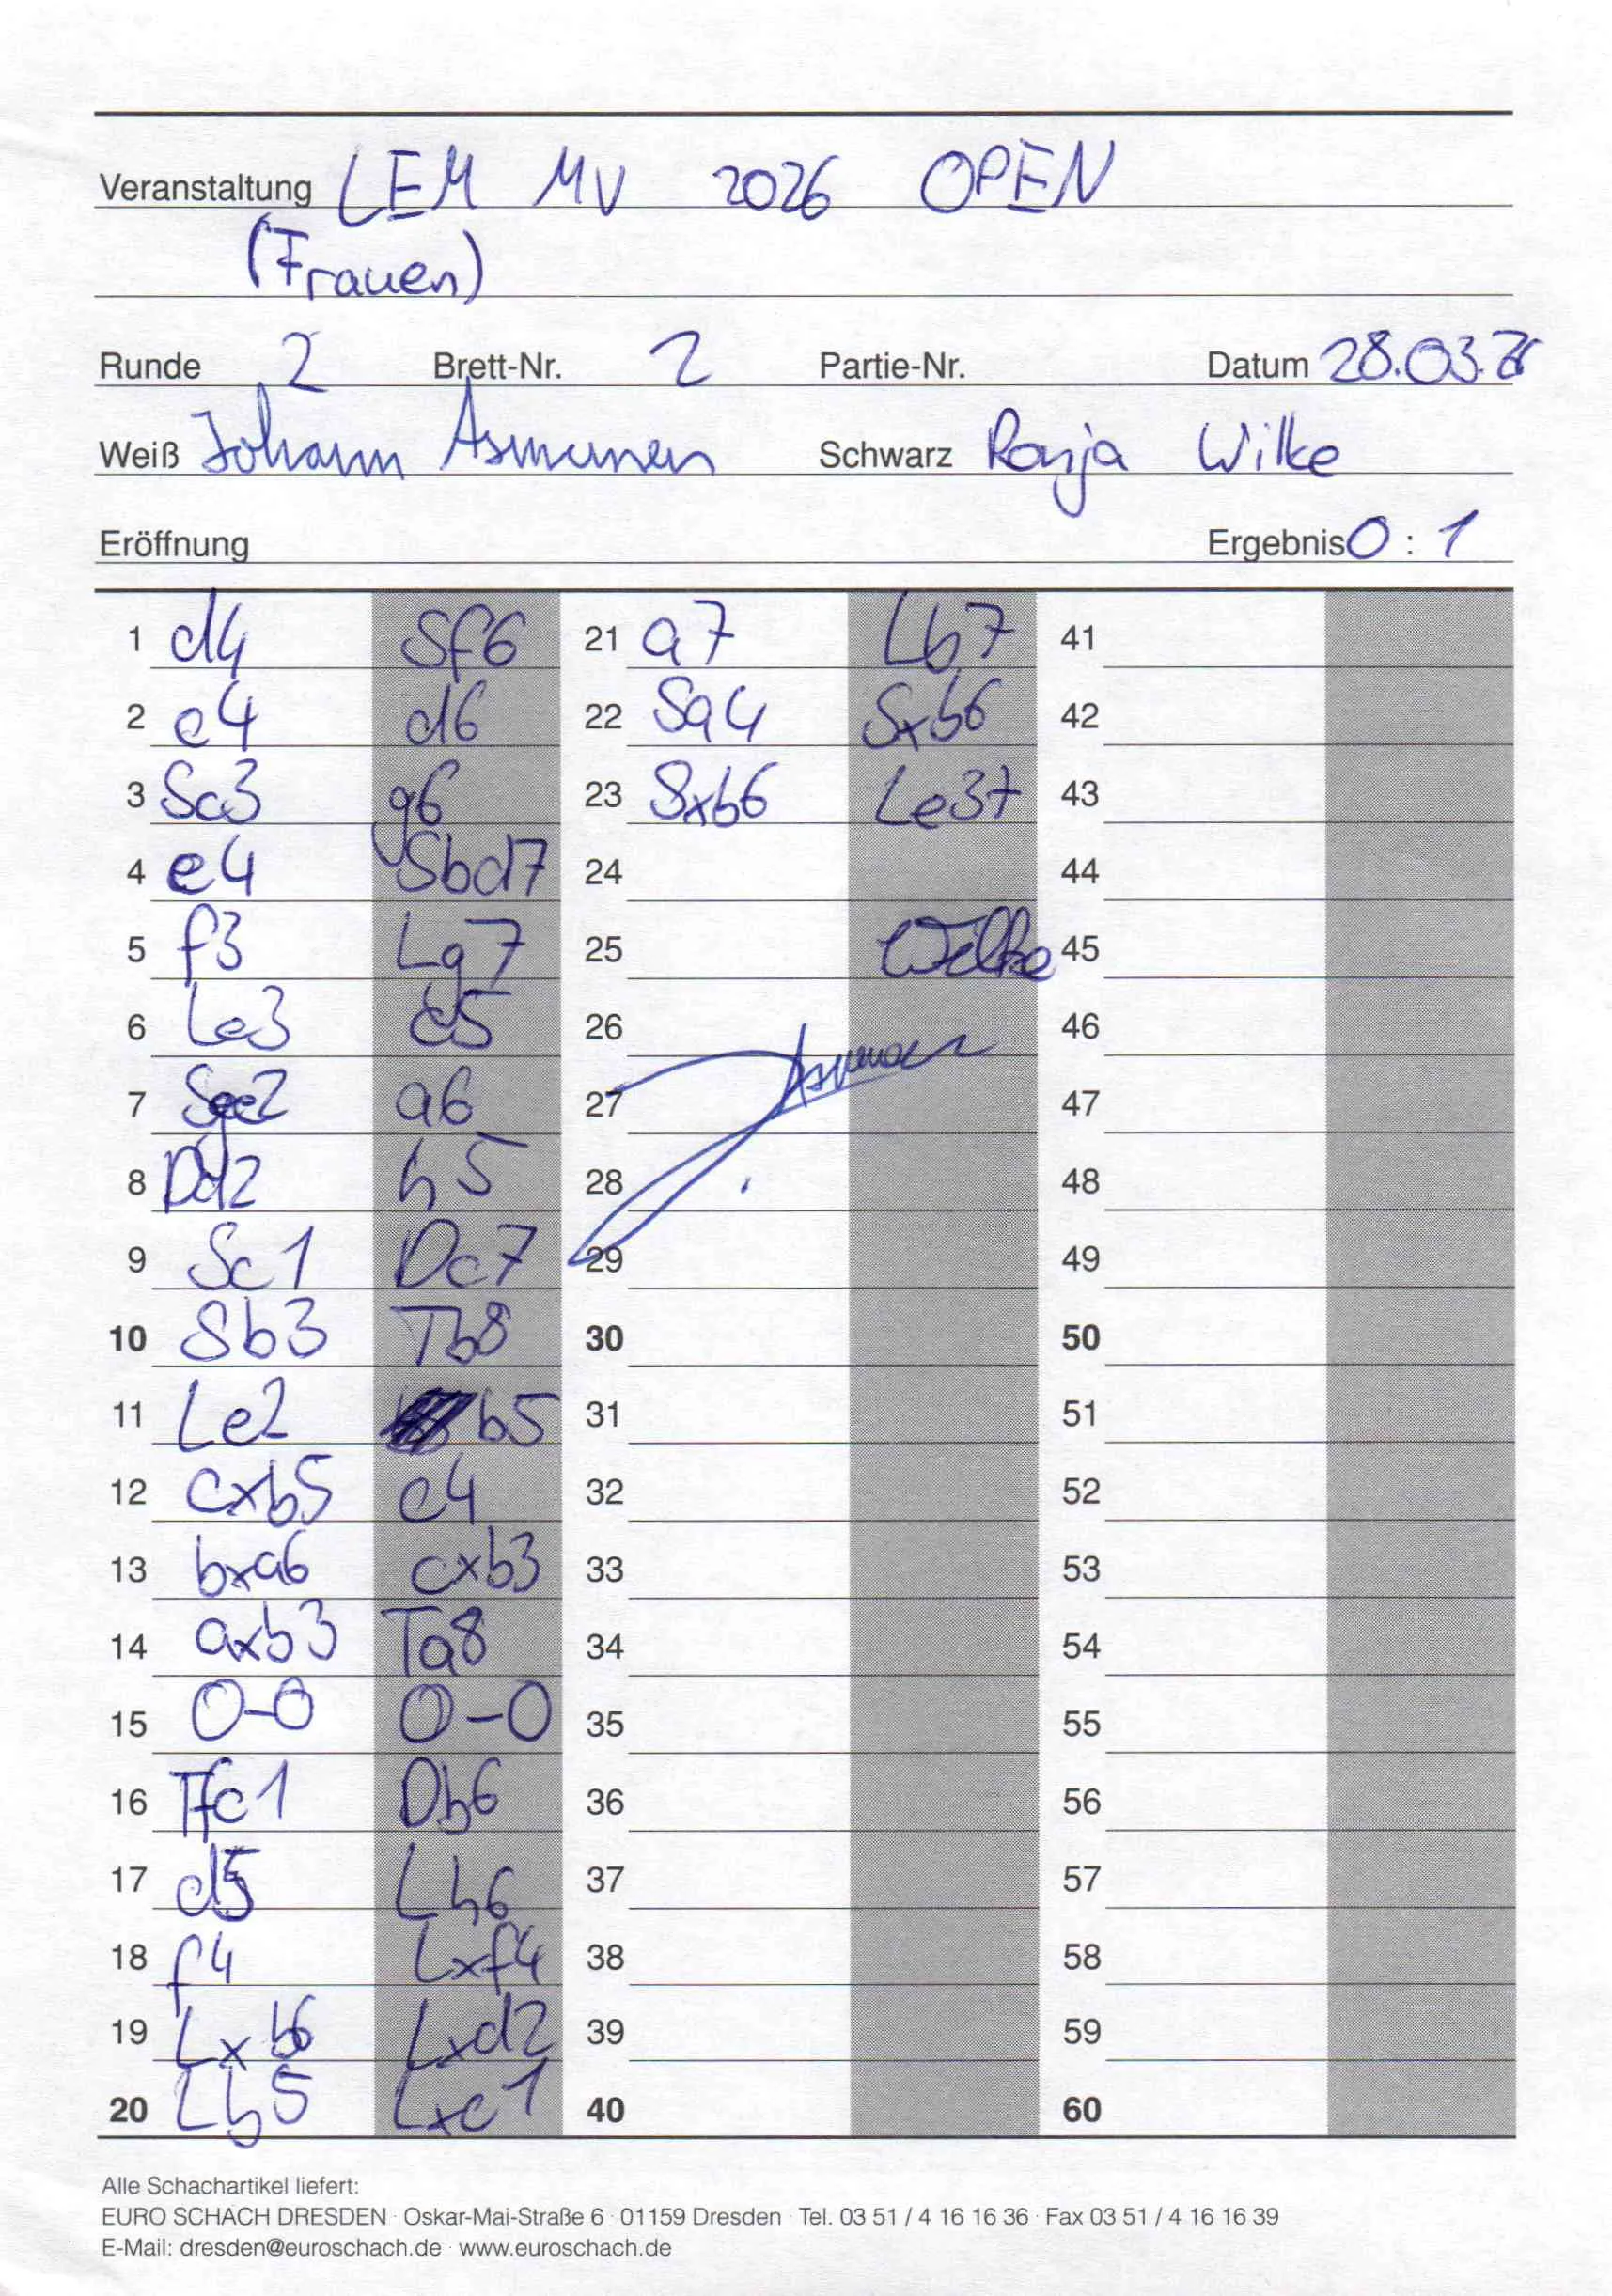 Veranstaltung LEM MV 2026 OPEN
(Frauen)
Runde 2 Brett-Nr. 2 Partie-Nr. Datum 28.03.26
Weiß Johann Asmunen Schwarz Ronja Wilke
Eröffnung Ergebnis 0 : 1
1 d4 Sf6 21 a7 Lb7 41
2 c4 d6 22 Sa4 Sxb6 42
3 Sc3 g6 23 Sxb6 Le3+ 43
4 e4 Sbd7 24 44
5 f3 Lg7 25 Wilke 45
6 Le3 c5 26 46
7 Sge2 a6 27 47
8 Dd2 h5 28 48
9 Sc1 Dc7 29 49
10 Sb3 Tb8 30 50
11 Le2 b5 31 51
12 cxb5 c4 32 52
13 bxa6 cxb3 33 53
14 axb3 Ta8 34 54
15 0-0 0-0 35 55
16 Tfc1 Db6 36 56
17 d5 Lh6 37 57
18 f4 Lxf4 38 58
19 Lxb6 Lxd2 39 59
20 Lb5 Lxc1 40 60
Alle Schachartikel liefert:
EURO SCHACH DRESDEN · Oskar-Mai-Straße 6 · 01159 Dresden · Tel. 03 51 / 4 16 16 36 · Fax 03 51 / 4 16 16 39
E-Mail: dresden@euroschach.de · www.euroschach.de